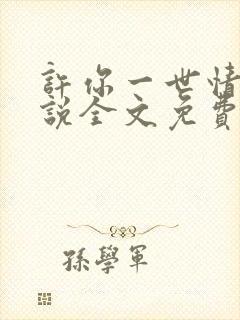 許你一世情
說全文免費
孫學軍